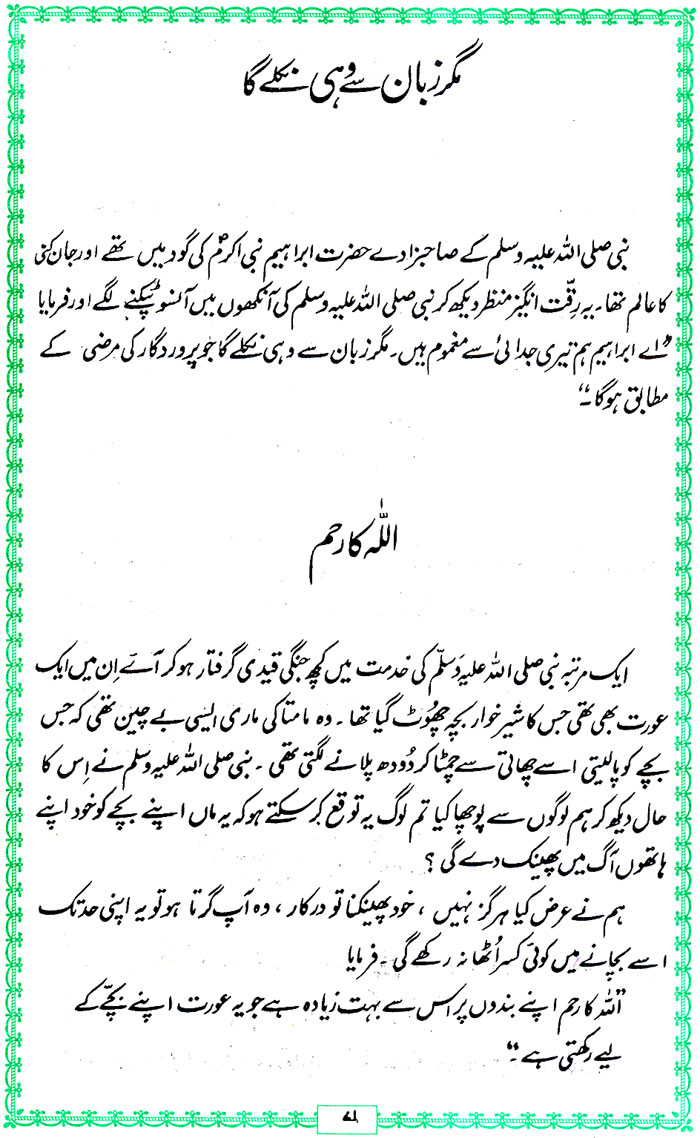 مگر زبان سے وہی نکلے گا
نبی صلی اللہ علیہ وسلم کے صاحبزادے حضرت ابراہیم نبی اکرمؐ کی گود میں تھے اور جان کنی
کا عالم تھا۔ یہ رقّت انگیز منظر دیکھ کر نبی صلی اللہ علیہ وسلم کی آنکھوں میں آنسو ٹپکنے لگے اور فرمایا
"اے ابراہیم ہم تیری جدائی سے مغموم ہیں۔ مگر زبان سے وہی نکلے گا جو پروردگار کی مرضی کے
مطابق ہو گا۔"
اللہ کا رحم
ایک مرتبہ نبی صلی اللہ علیہ وَسلّم کی خدمت میں کچھ جنگی قیدی گرفتار ہو کر آئے اِن میں ایک
عورت بھی تھی جس کا شیر خوار بچہ چھُوٹ گیا تھا۔ وہ مامتا کی ماری ایسی بے چین تھی کہ جس
بچے کو پا لیتی اسے چھاتی سے چمٹا کر دُودھ پلانے لگتی تھی۔ نبی صلی اللہ علیہ وسلم نے اِس کا
حال دیکھ کر ہم لوگوں سے پوچھا کیا تم لوگ یہ توقع کر سکتے ہو کہ یہ ماں اپنے بچے کو خود اپنے
ہاتھوں آگ میں پھینک دے گی ؟
ہم نے عرض کیا ہرگز نہیں ، خود پھینکنا تو درکار ، وہ آپ گرتا ہو تو یہ اپنی حد تک
اسے بچانے میں کوئی کسر اُٹھا نہ رکھے گی۔ فرمایا
"اللہ کا رحم اپنے بندوں پر اس سے بہت زیادہ ہے جو یہ عورت اپنے بچّے کے
لیے رکھتی ہے۔"